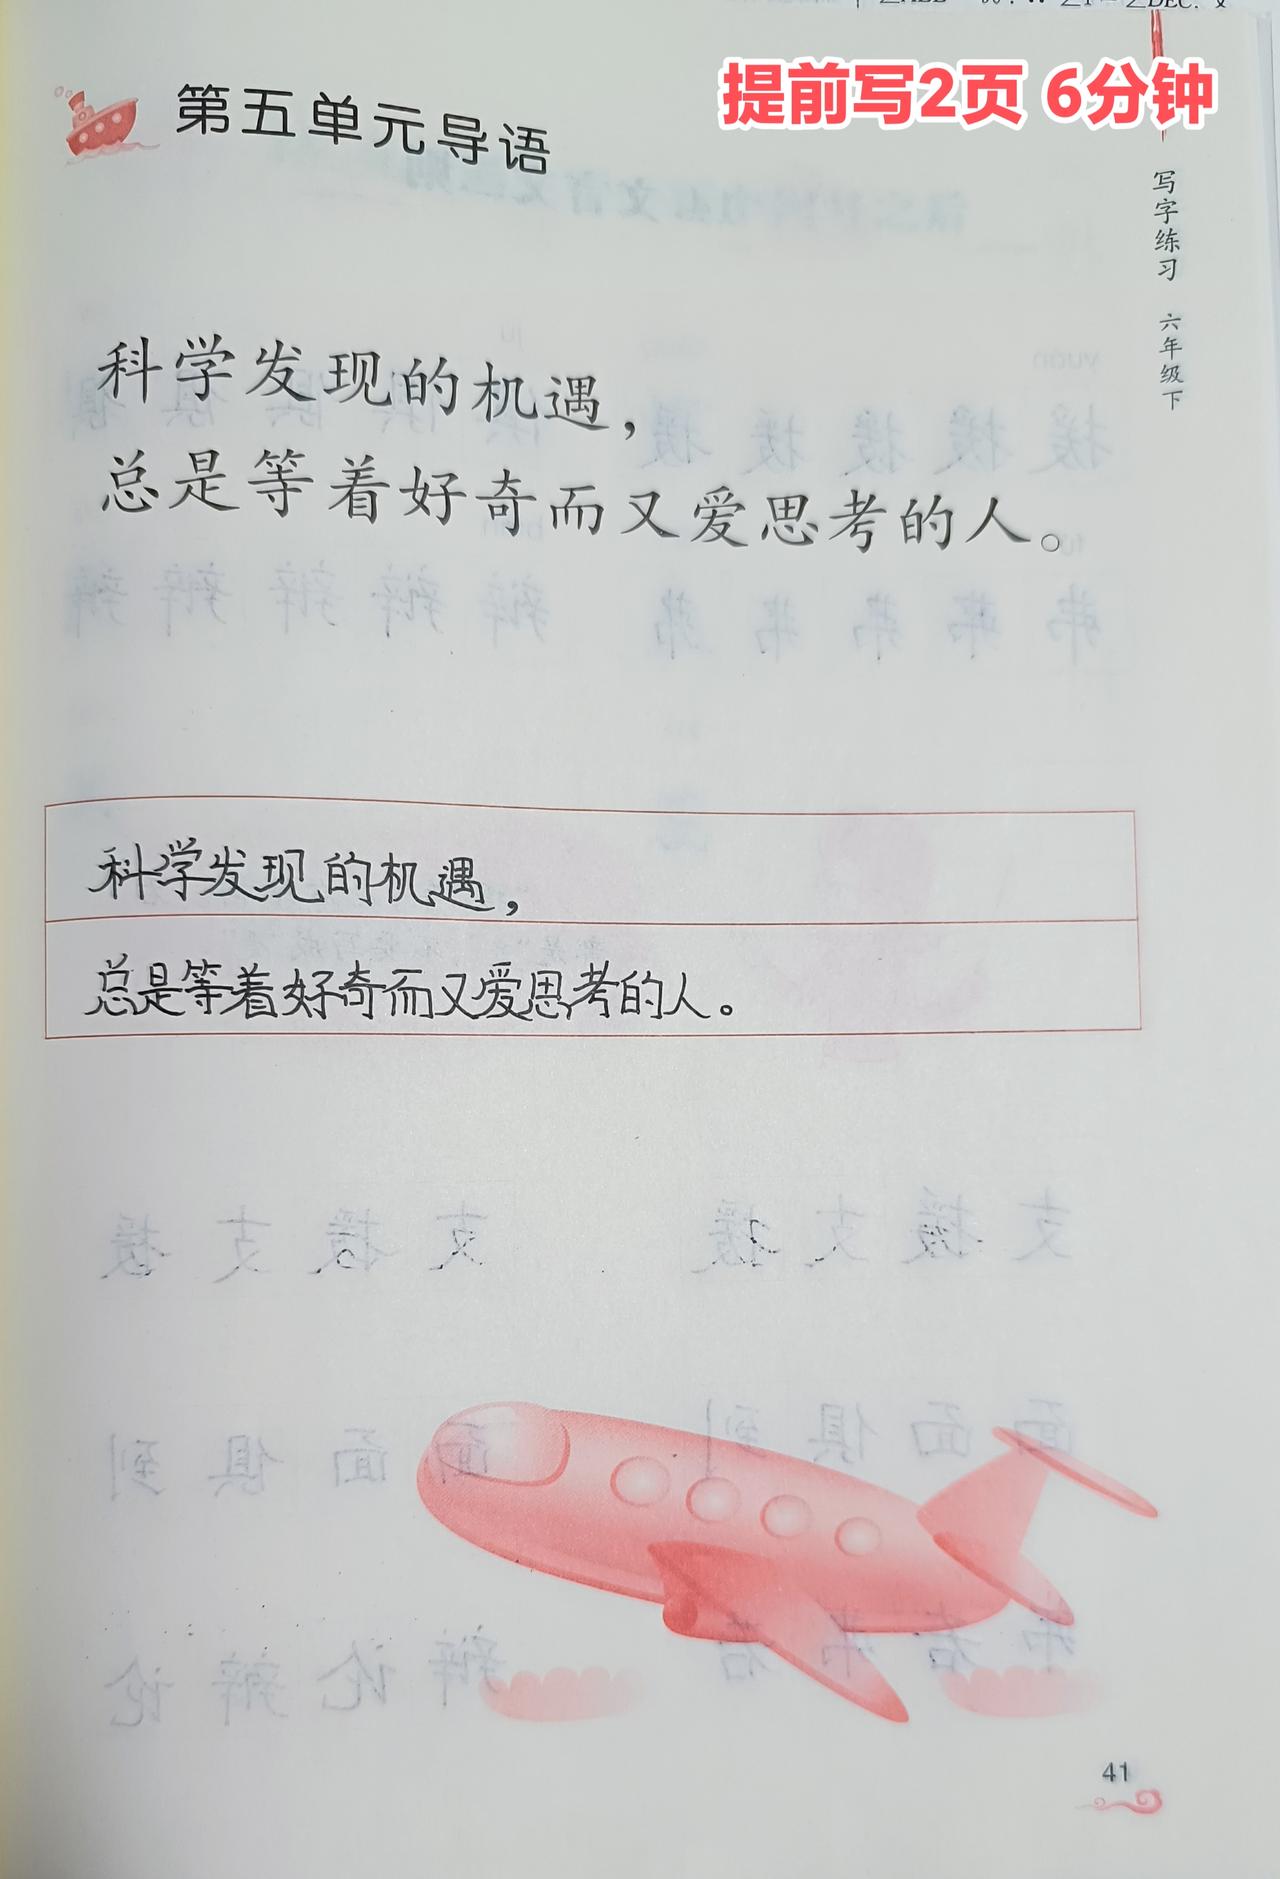 提前写2页 6分钟
第五单元导语
写字练习 六年级下
科学发现的机遇，
总是等着好奇而又爱思考的人。
科学发现的机遇，
总是等着好奇而又爱思考的人。
41